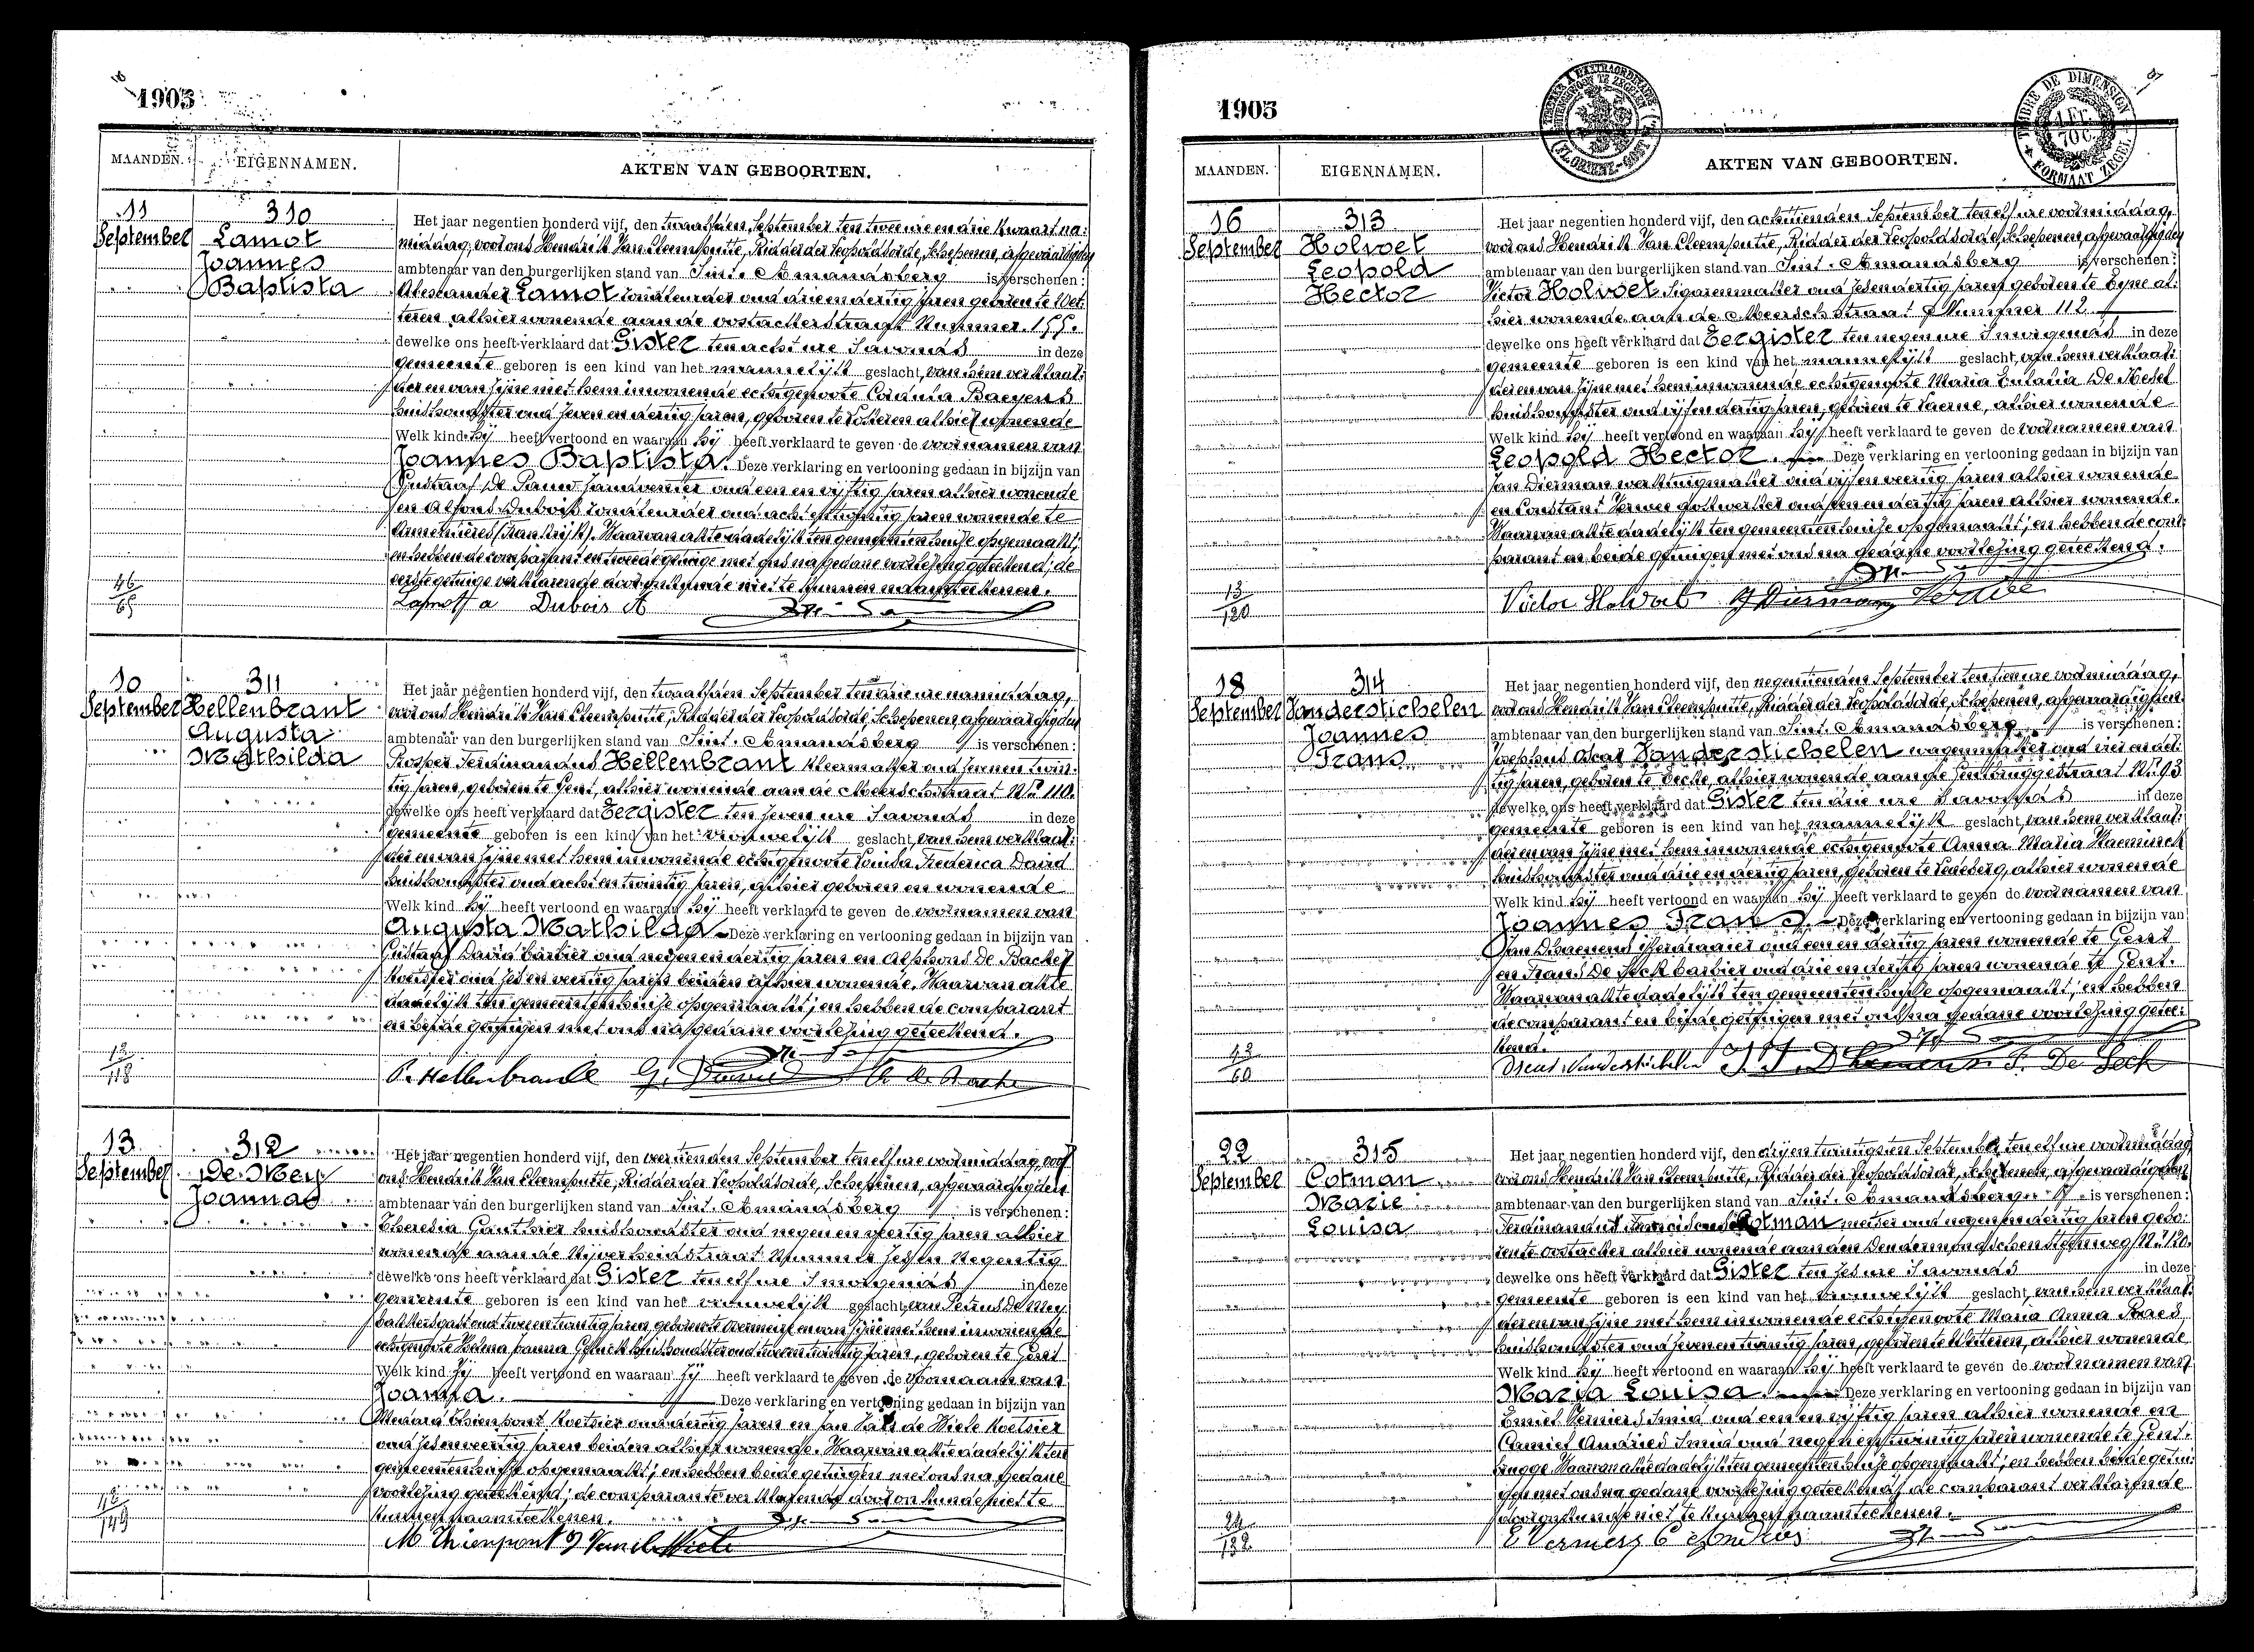 1905
MAANDEN. EIGENNAMEN. AKTEN VAN GEBOORTEN.
11 September
310
Lamot
Joannes
Baptista
Het jaar negentien honderd vijf, den twaalfden September ten twee ure en drie kwaart na:
middag, voor ons Hendrik Van Cleemputte, Ridder der Leopoldsorde, Schepenen, afgevaardigden
ambtenaar van den burgerlijken stand van Sint. Amandsberg is verschenen:
Alexander Lamot tonduender oud drie en dertig jaren geboren te Wet:
teren alhier wonende aan de oostackerstraat Nummer 155.
dewelke ons heeft verklaard dat Gister ten acht ure s'avonds in deze
gemeente geboren is een kind van het mannelijk geslacht, van hem verklaar:
der en van zijne met hem inwonende echtgenoote Coralia Baeyens
huishoudster oud zeven en dertig jaren, geboren te Lokeren alhier wonende
Welk kind hij heeft vertoond en waaraan hij heeft verklaard te geven de voornamen van
Joannes Baptista. Deze verklaring en vertooning gedaan in bijzijn van
Gustaaf De Pauw oud een en vijftig jaren alhier wonende
en Alfons Dubois oud acht en jaren wonende te
Armentières (Frankrijk). Waarvan akte dadelijk ten gemeentenhuize opgemaakt;
en hebben de comparant en tweede getuige met ons na gedane voorlezing geteekend; de
eerste getuige verklarende door onkunde niet te kunnen naamteekenen.
46/65
Lamot a Dubois A
10 September
311
Hellenbrant
Augusta
Mathilda
Het jaar negentien honderd vijf, den twaalfden September ten drie ure namiddag,
voor ons Hendrik Van Cleemputte, Ridder der Leopoldsorde, Schepenen, afgevaardigden
ambtenaar van den burgerlijken stand van Sint. Amandsberg is verschenen:
Prosper Ferdinandus Hellenbrant kleermaker oud zeven en twin:
tig jaren, geboren te Gent, alhier wonende aan de Meerschstraat Nr. 110.
dewelke ons heeft verklaard dat Eergister ten zeven ure s'avonds in deze
gemeente geboren is een kind van het vrouwelijk geslacht, van hem verklaar:
der en van zijne met hem inwonende echtgenoote Louisa Frederica David
huishoudster oud acht en twintig jaren, alhier geboren en wonende
Welk kind hij heeft vertoond en waaraan hij heeft verklaard te geven de voornamen van
Augusta Mathilda. Deze verklaring en vertooning gedaan in bijzijn van
Gustaaf David barbier oud negen en dertig jaren en Alphons De Backer
koetsier oud zes en veertig jaren beiden alhier wonende. Waarvan akte
dadelijk ten gemeentenhuize opgemaakt; en hebben de comparant
en beide getuigen met ons na gedane voorlezing geteekend.
12/118
P. Hellenbrant G. David
13 September
312
De Mey
Joanna
Het jaar negentien honderd vijf, den veertienden September ten elf ure voormiddag, voor
ons Hendrik Van Cleemputte, Ridder der Leopoldsorde, Schepenen, afgevaardigden
ambtenaar van den burgerlijken stand van Sint. Amandsberg is verschenen:
Theresia Gauthier huishoudster oud negen en veertig jaren alhier
wonende aan de Nijverheidstraat Nummer zes en Negentig
dewelke ons heeft verklaard dat Gister ten elf ure s'morgends in deze
gemeente geboren is een kind van het vrouwelijk geslacht, van Petrus De Mey
bakkersgast oud twee en twintig jaren, geboren te en van zijne met hem inwonende
echtgenoote Helena Joanna huishoudster oud twee en twintig jaren, geboren te Gent
Welk kind zij heeft vertoond en waaraan zij heeft verklaard te geven de voornaam van
Joanna. Deze verklaring en vertooning gedaan in bijzijn van
Medard Thienpont koetsier oud dertig jaren en Jan Van de Wiele koetsier
oud zes en veertig jaren beiden alhier wonende. Waarvan akte dadelijk ten
gemeentenhuize opgemaakt; en hebben beide getuigen met ons na gedane
voorlezing geteekend; de comparante verklarende door onkunde niet te
kunnen naamteekenen.
42/149
M Thienpont J Van de Wiele
1905
MAANDEN. EIGENNAMEN. AKTEN VAN GEBOORTEN.
TIMBRE DE DIMENSION
1 Fr. 70 C.
FORMAAT ZEGEL
16 September
313
Holvoet
Leopold
Hector
Het jaar negentien honderd vijf, den achttienden September ten elf ure voormiddag,
voor ons Hendrik Van Cleemputte, Ridder der Leopoldsorde, Schepenen, afgevaardigden
ambtenaar van den burgerlijken stand van Sint. Amandsberg is verschenen:
Victor Holvoet sigarenmaker oud zes en dertig jaren geboren te Eyne al:
hier wonende aan de Meerschstraat Nummer 112
dewelke ons heeft verklaard dat Eergister ten negen ure s'morgends in deze
gemeente geboren is een kind van het mannelijk geslacht, van hem verklaar:
der en van zijne met hem inwonende echtgenoote Maria Eulalia De Hesel
huishoudster oud vijf en dertig jaren, geboren te Laerne, alhier wonende
Welk kind hij heeft vertoond en waaraan hij heeft verklaard te geven de voornamen van
Leopold Hector. Deze verklaring en vertooning gedaan in bijzijn van
Jan Dierman werktuigmaker oud vijf en veertig jaren alhier wonende
en Constant oud en dertig jaren alhier wonende.
Waarvan akte dadelijk ten gemeentenhuize opgemaakt; en hebben de com:
parant en beide getuigen met ons na gedane voorlezing geteekend.
13/120
Victor Holvoet J Dierman
18 September
314
Vanderstichelen
Joannes
Frans
Het jaar negentien honderd vijf, den negentienden September ten tien ure voormiddag,
voor ons Hendrik Van Cleemputte, Ridder der Leopoldsorde, Schepenen, afgevaardigden
ambtenaar van den burgerlijken stand van Sint. Amandsberg is verschenen:
Josephus Oscar Vanderstichelen wagenmaker oud vier en der:
tig jaren, geboren te Eecke, alhier wonende aan de Gentbruggestraat Nr. 93
dewelke ons heeft verklaard dat Gister ten drie ure s'avonds in deze
gemeente geboren is een kind van het mannelijk geslacht, van hem verklaar:
der en van zijne met hem inwonende echtgenoote Anna Maria Haeminck
huishoudster oud drie en dertig jaren, geboren te Ledeberg, alhier wonende
Welk kind hij heeft vertoond en waaraan hij heeft verklaard te geven de voornamen van
Joannes Frans. Deze verklaring en vertooning gedaan in bijzijn van
Jan D'haenens oud een en dertig jaren wonende te Gent
en Frans De barbier oud drie en dertig jaren wonende te Gent.
Waarvan akte dadelijk ten gemeentenhuize opgemaakt; en hebben
de comparant en beide getuigen met ons na gedane voorlezing getee:
kend.
43/60
Oscar Vanderstichelen
22 September
315
Cotman
Marie
Louisa
Het jaar negentien honderd vijf, den drij en twintigsten September ten elf ure voormiddag
voor ons Hendrik Van Cleemputte, Ridder der Leopoldsorde, Schepenen, afgevaardigden
ambtenaar van den burgerlijken stand van Sint. Amandsberg is verschenen:
Ferdinandus Franciscus Cotman metser oud negen en dertig jaren gebo:
ren te Oostacker alhier wonende aan den Dendermondschen Steenweg Nr. 120.
dewelke ons heeft verklaard dat Gister ten zes ure s'avonds in deze
gemeente geboren is een kind van het vrouwelijk geslacht, van hem verklaar:
der en van zijne met hem inwonende echtgenoote Maria Anna Praet
huishoudster oud zeven en dertig jaren, geboren te Wetteren, alhier wonende
Welk kind hij heeft vertoond en waaraan hij heeft verklaard te geven de voornamen van
Maria Louisa. Deze verklaring en vertooning gedaan in bijzijn van
Emiel Verniers smid oud een en vijftig jaren alhier wonende en
Camiel Andries smid oud negen en twintig jaren wonende te Gent:
brugge. Waarvan akte dadelijk ten gemeentenhuize opgemaakt; en hebben beide getui:
gen met ons na gedane voorlezing geteekend; de comparant verklarende
door onkunde niet te kunnen naamteekenen.
24/132
E Verniers C Andries